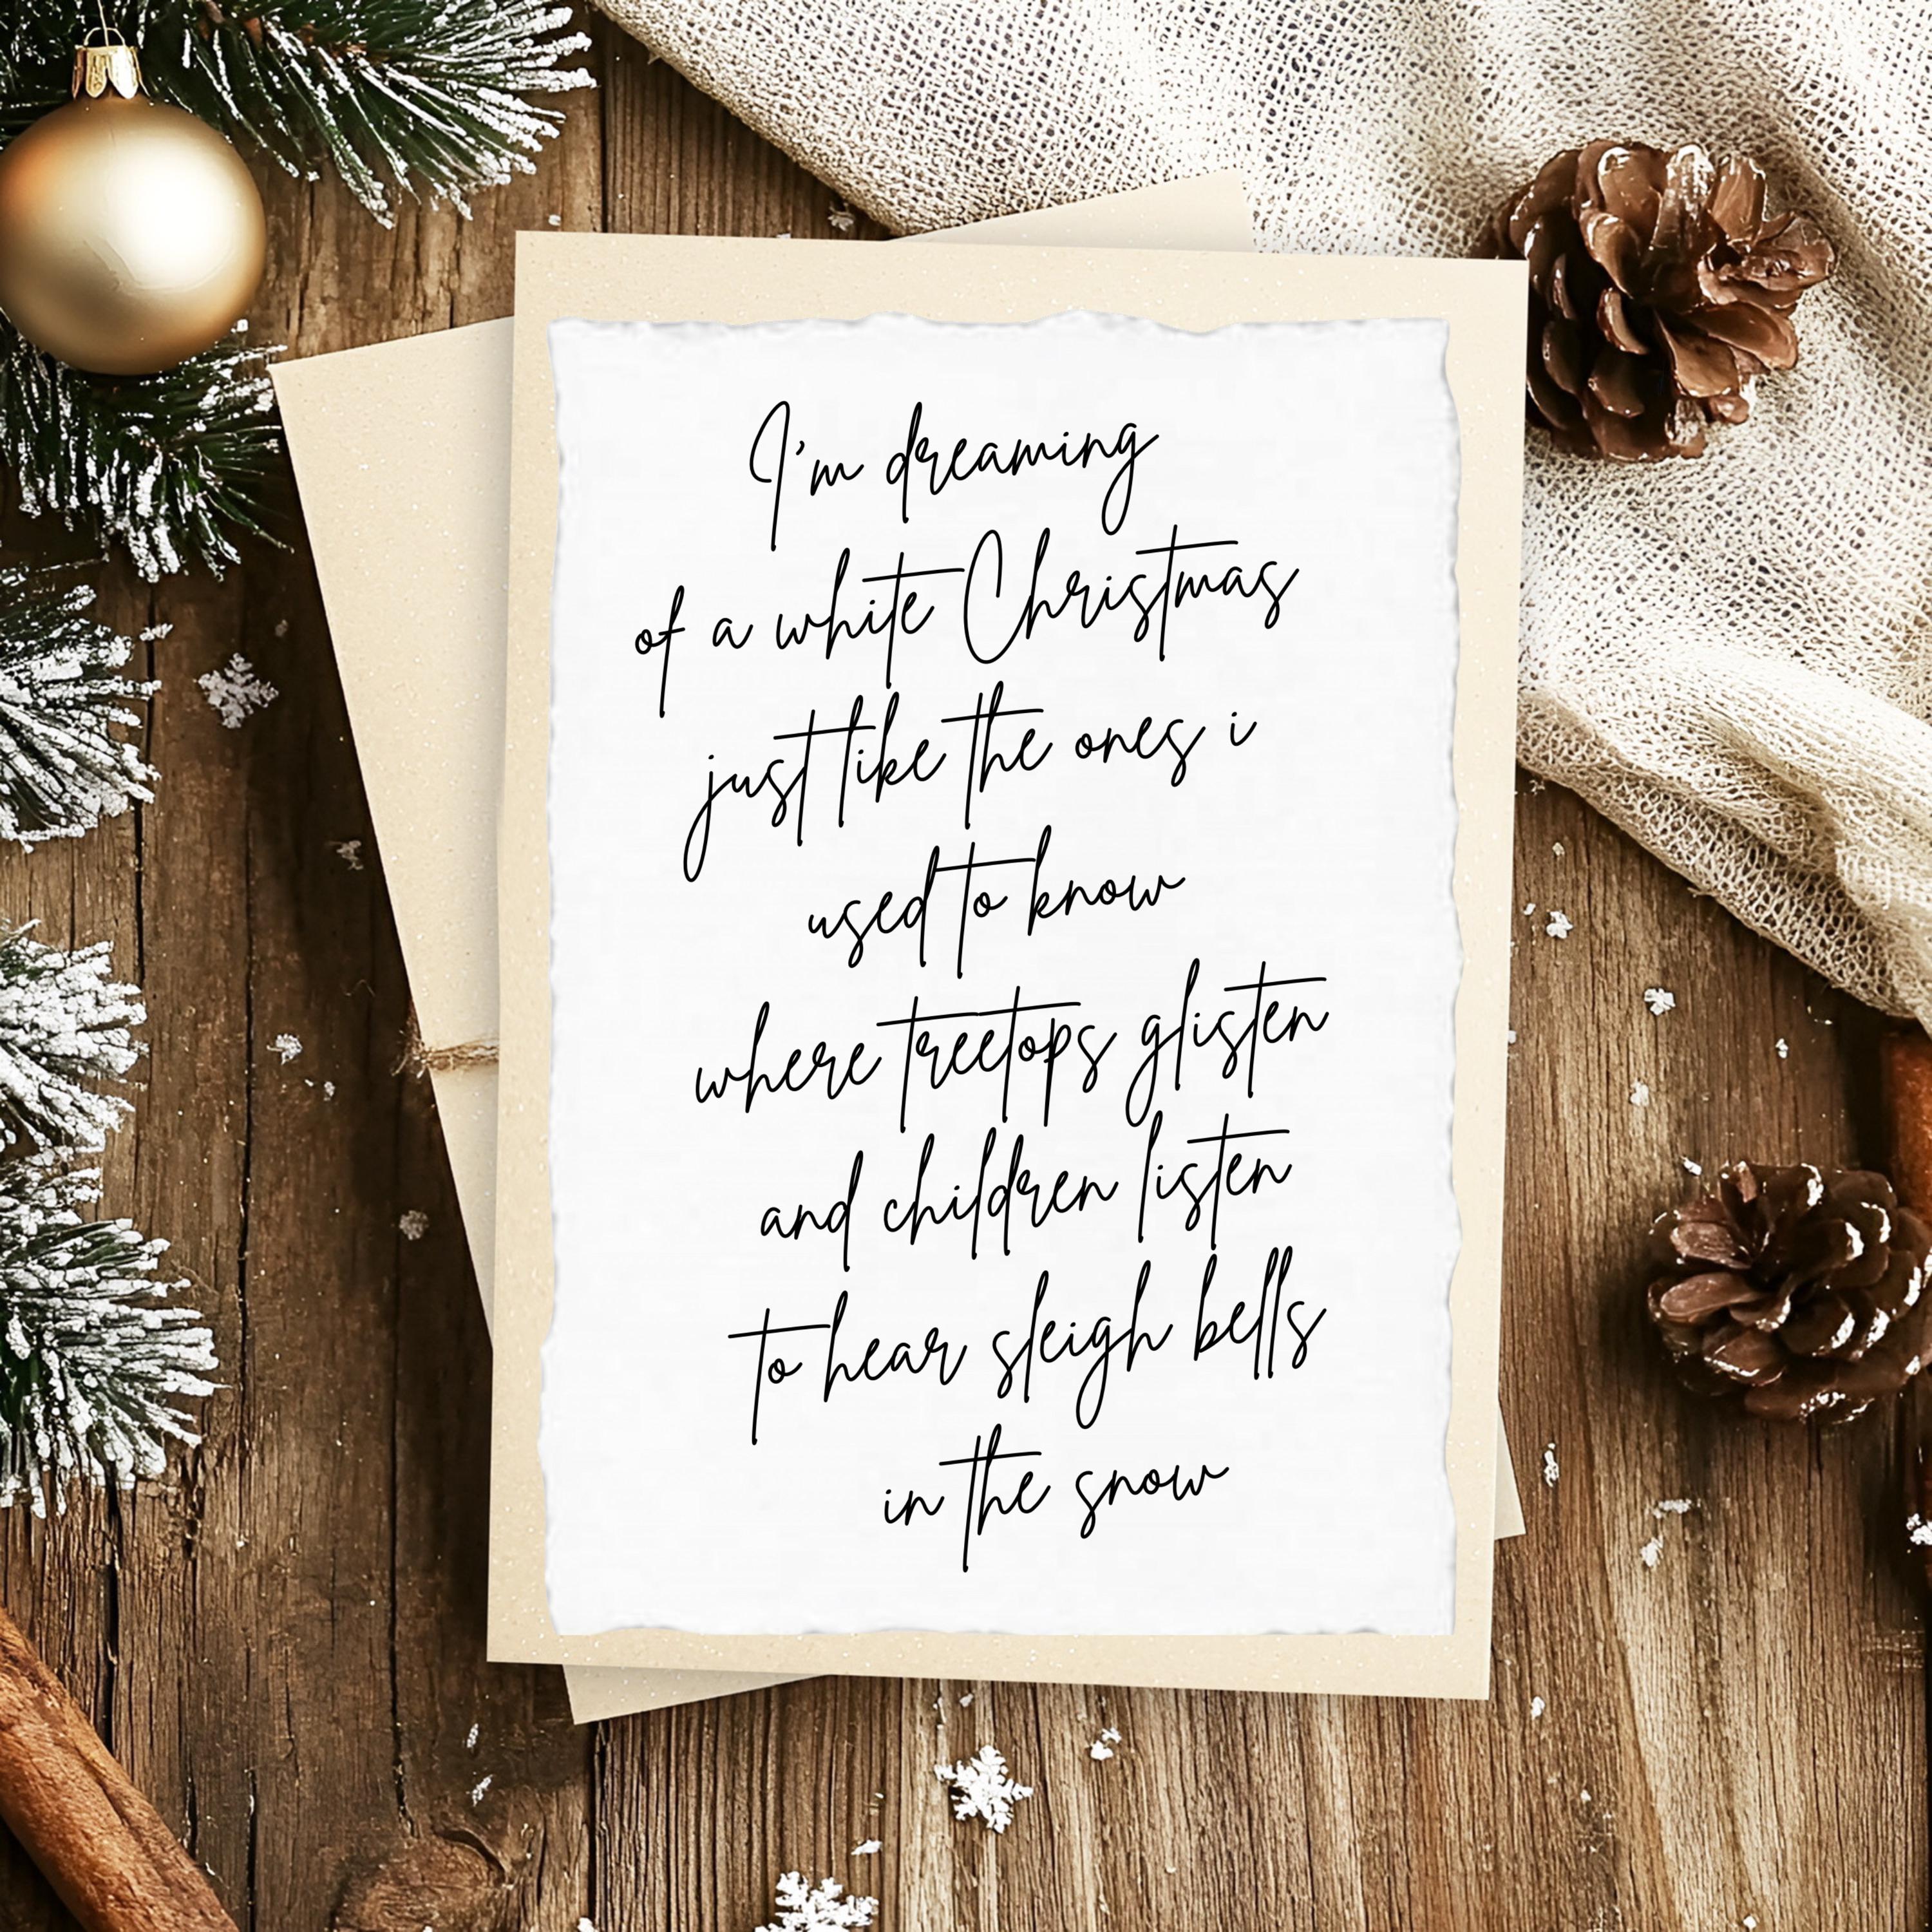 I'm dreaming
of a white Christmas
just like the ones i
used to know
where treetops glisten
and children listen
to hear sleigh bells
in the snow